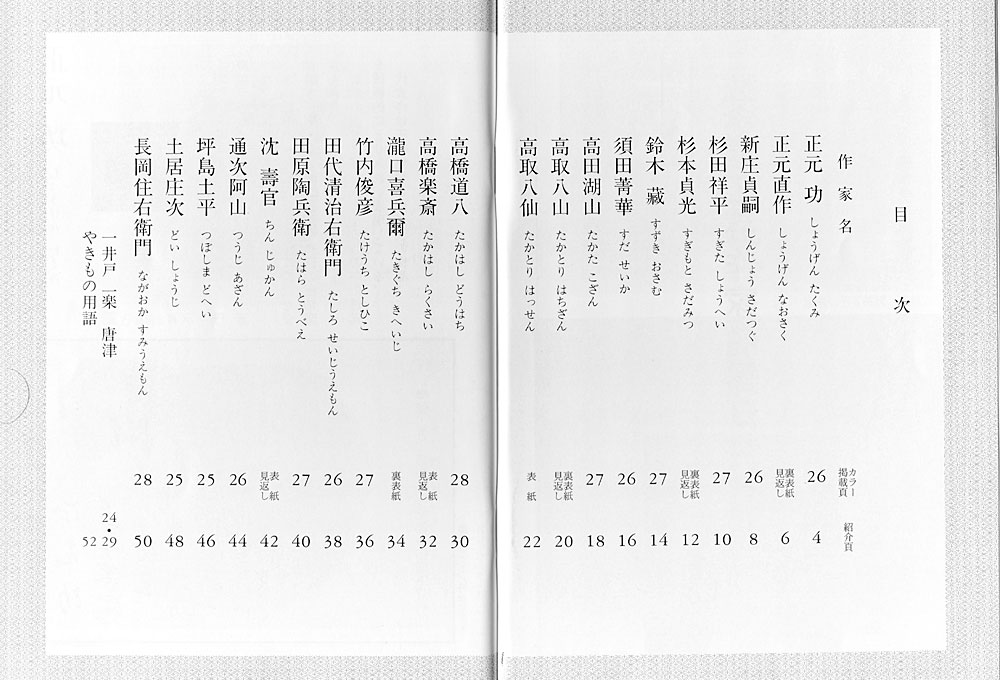 目次
作家名 カラー掲載頁 紹介頁
正元 功 しょうげん たくみ 26 4
正元直作 しょうげん なおさく 裏表紙見返し 6
新庄貞嗣 しんじょう さだつぐ 26 8
杉田祥平 すぎた しょうへい 27 10
杉本貞光 すぎもと さだみつ 裏表紙見返し 12
鈴木 藏 すずき おさむ 27 14
須田菁華 すだ せいか 26 16
高田湖山 たかた こざん 27 18
高取八山 たかとり はちざん 裏表紙見返し 20
高取八仙 たかとり はっせん 表紙 22
高橋道八 たかはし どうはち 28 30
高橋楽斎 たかはし らくさい 表紙見返し 32
瀧口喜兵爾 たきぐち きへいじ 裏表紙 34
竹内俊彦 たけうち としひこ 27 36
田代清治右衛門 たしろ せいじうえもん 26 38
田原陶兵衛 たはら とうべえ 27 40
沈 壽官 ちん じゅかん 表紙見返し 42
通次阿山 つうじ あざん 26 44
坪島土平 つぼしま どへい 25 46
土居庄次 どい しょうじ 25 48
長岡住右衛門 ながおか すみうえもん 28 50
一井戸 一楽 唐津 24・29
やきもの用語 52